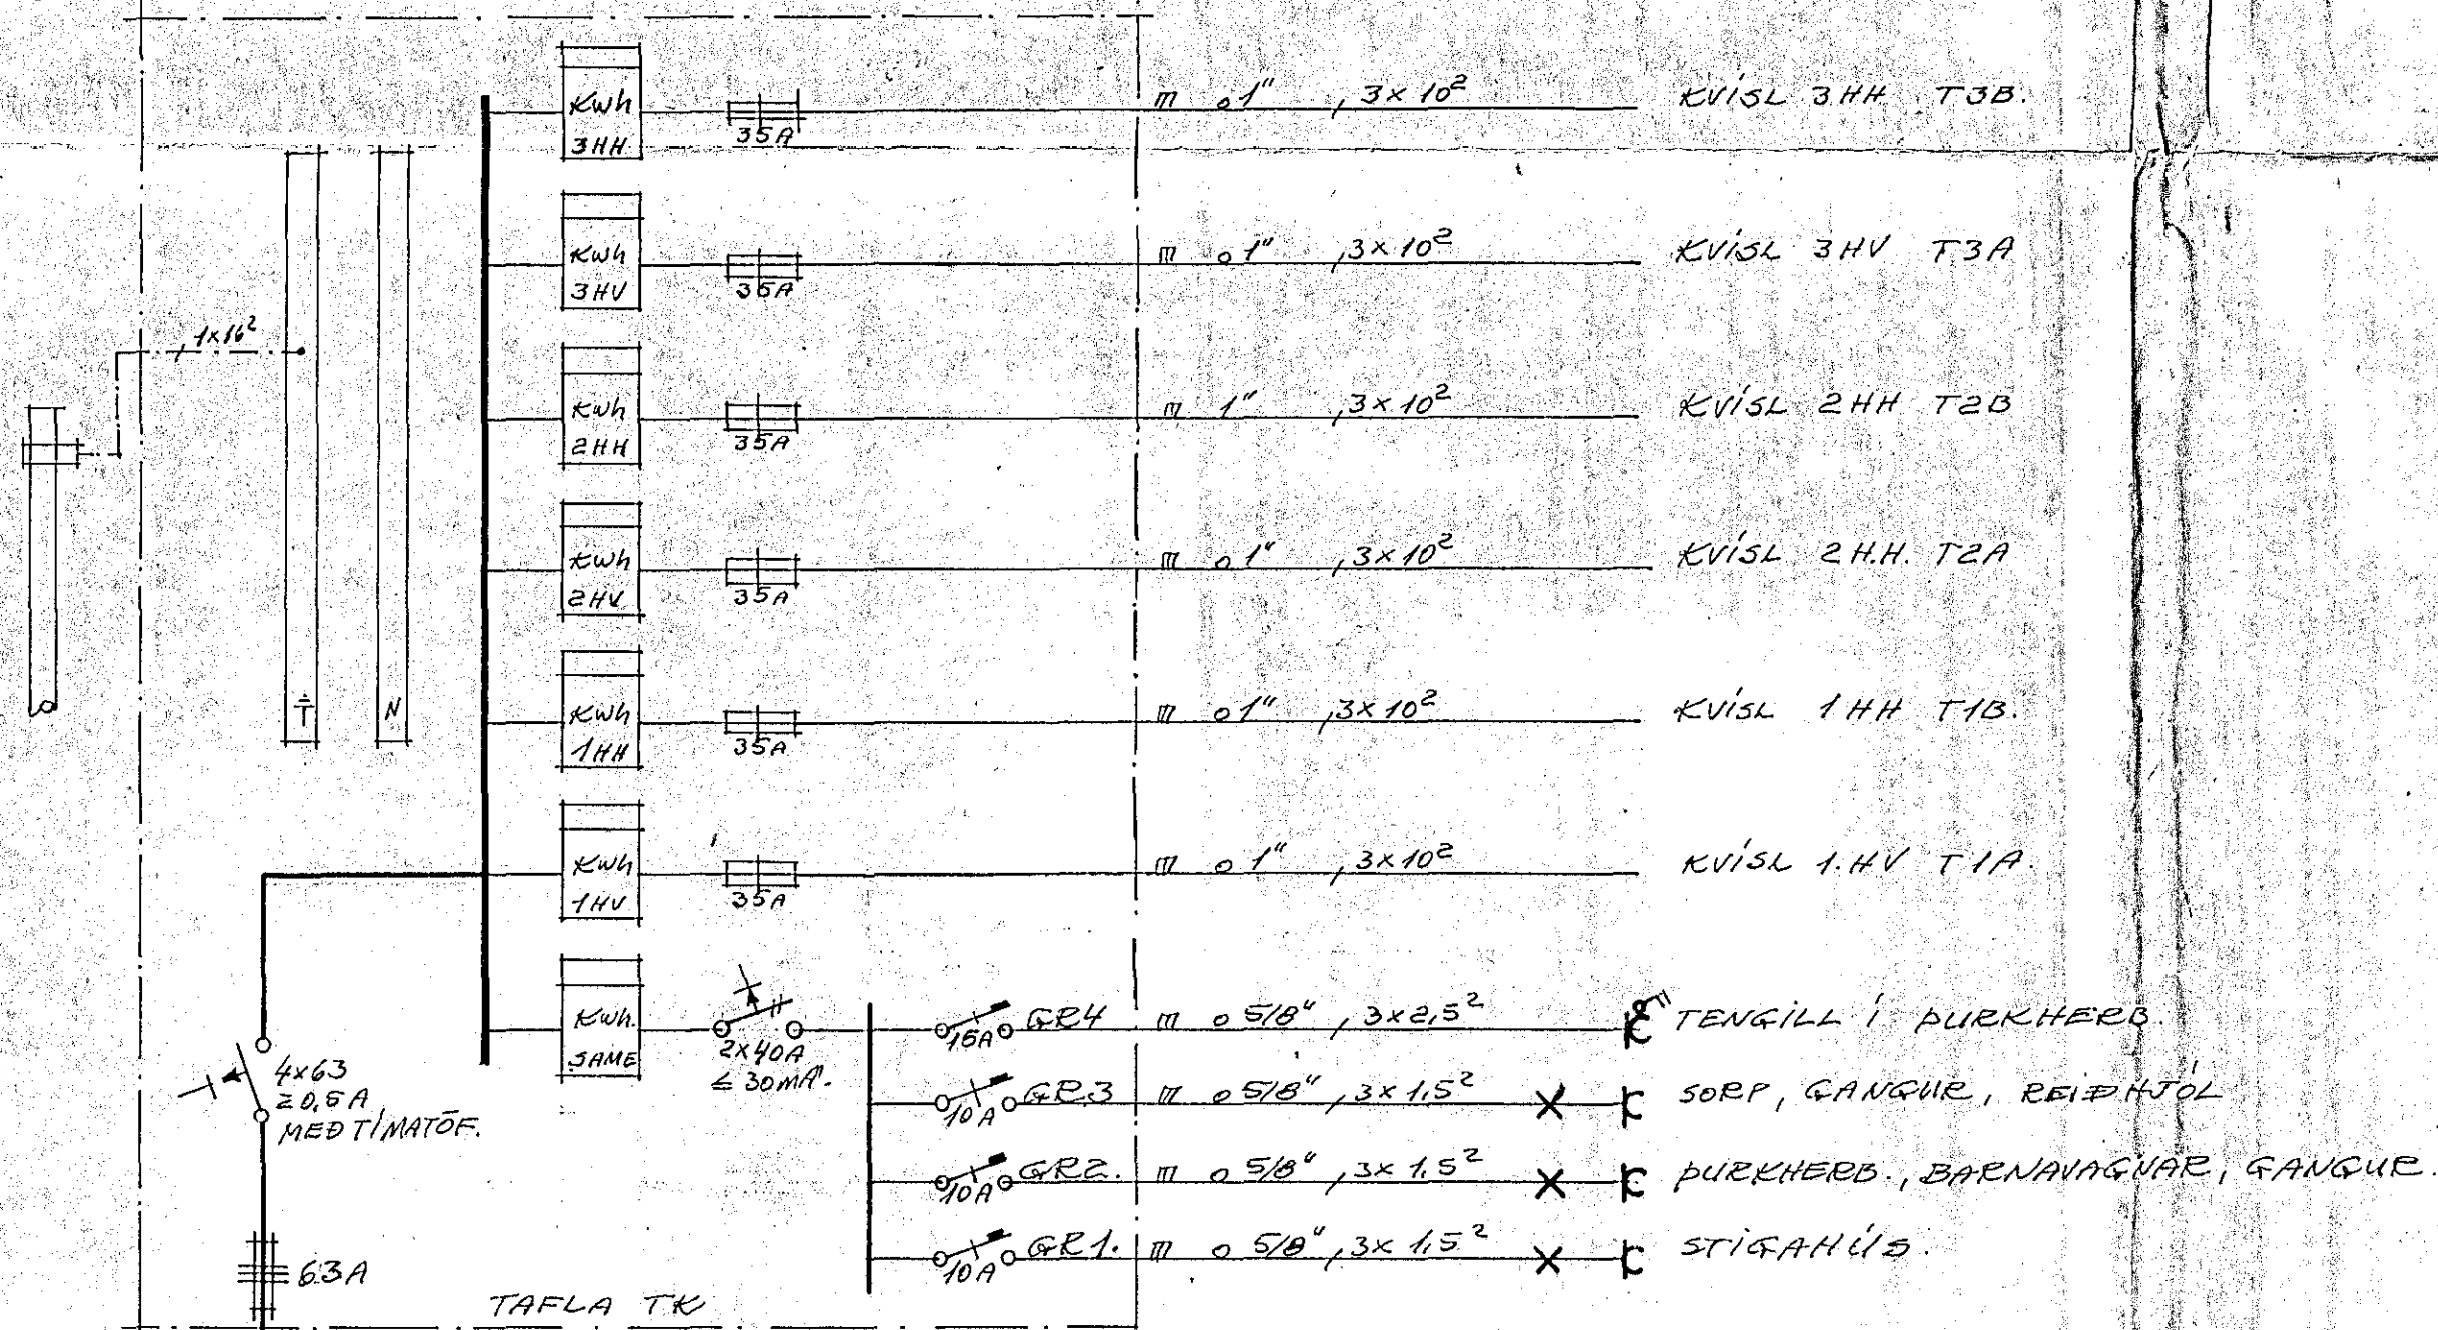 Kwh
3HH
35A
1" , 3 x 10²
KVÍSL 3HH T3B.
Kwh
3HV
35A
1" , 3 x 10²
KVÍSL 3HV T3A
1x16²
Kwh
2HH
35A
1" , 3 x 10²
KVÍSL 2HH T2B
Kwh
2HV
35A
1" , 3 x 10²
KVÍSL 2H.H. T2A
N
Kwh
1HH
35A
1" , 3 x 10²
KVÍSL 1HH T1B.
Kwh
1HV
35A
1" , 3 x 10²
KVÍSL 1.HV T1A.
Kwh.
SAME
2x40A
≤ 30mA.
GR4
16A
5/8" , 3x2,5²
TENGILL Í ÞURKHERB.
4x63
≥0,5A
MEÐ TÍMATÖF.
GR.3
10A
5/8" , 3x 1,5²
SORP, GANGUR, REIÐHJÓL
GR2.
10A
5/8" , 3x 1,5²
ÞURKHERB., BARNAVAGNAR, GANGUR.
GR1.
10A
5/8" , 3x 1,5²
STIGAHÚS.
63A
TAFLA TK